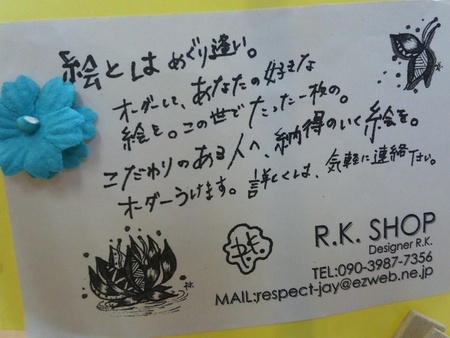 絵とはめぐり逢い。
オーダーして、あなたの好きな
絵を。この世でたった一枚の。
こだわりのある人へ、納得のいく絵を。
オーダーうけます。詳しくは、気軽に連絡下さい。
R.K. SHOP
Designer R.K.
TEL:090-3987-7356
MAIL:respect-jay@ezweb.ne.jp